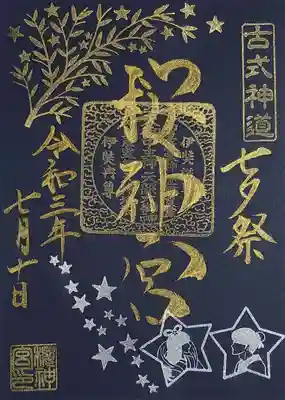 古式神道
七夕祭
桜神宮
令和三年
七月十日
櫻神